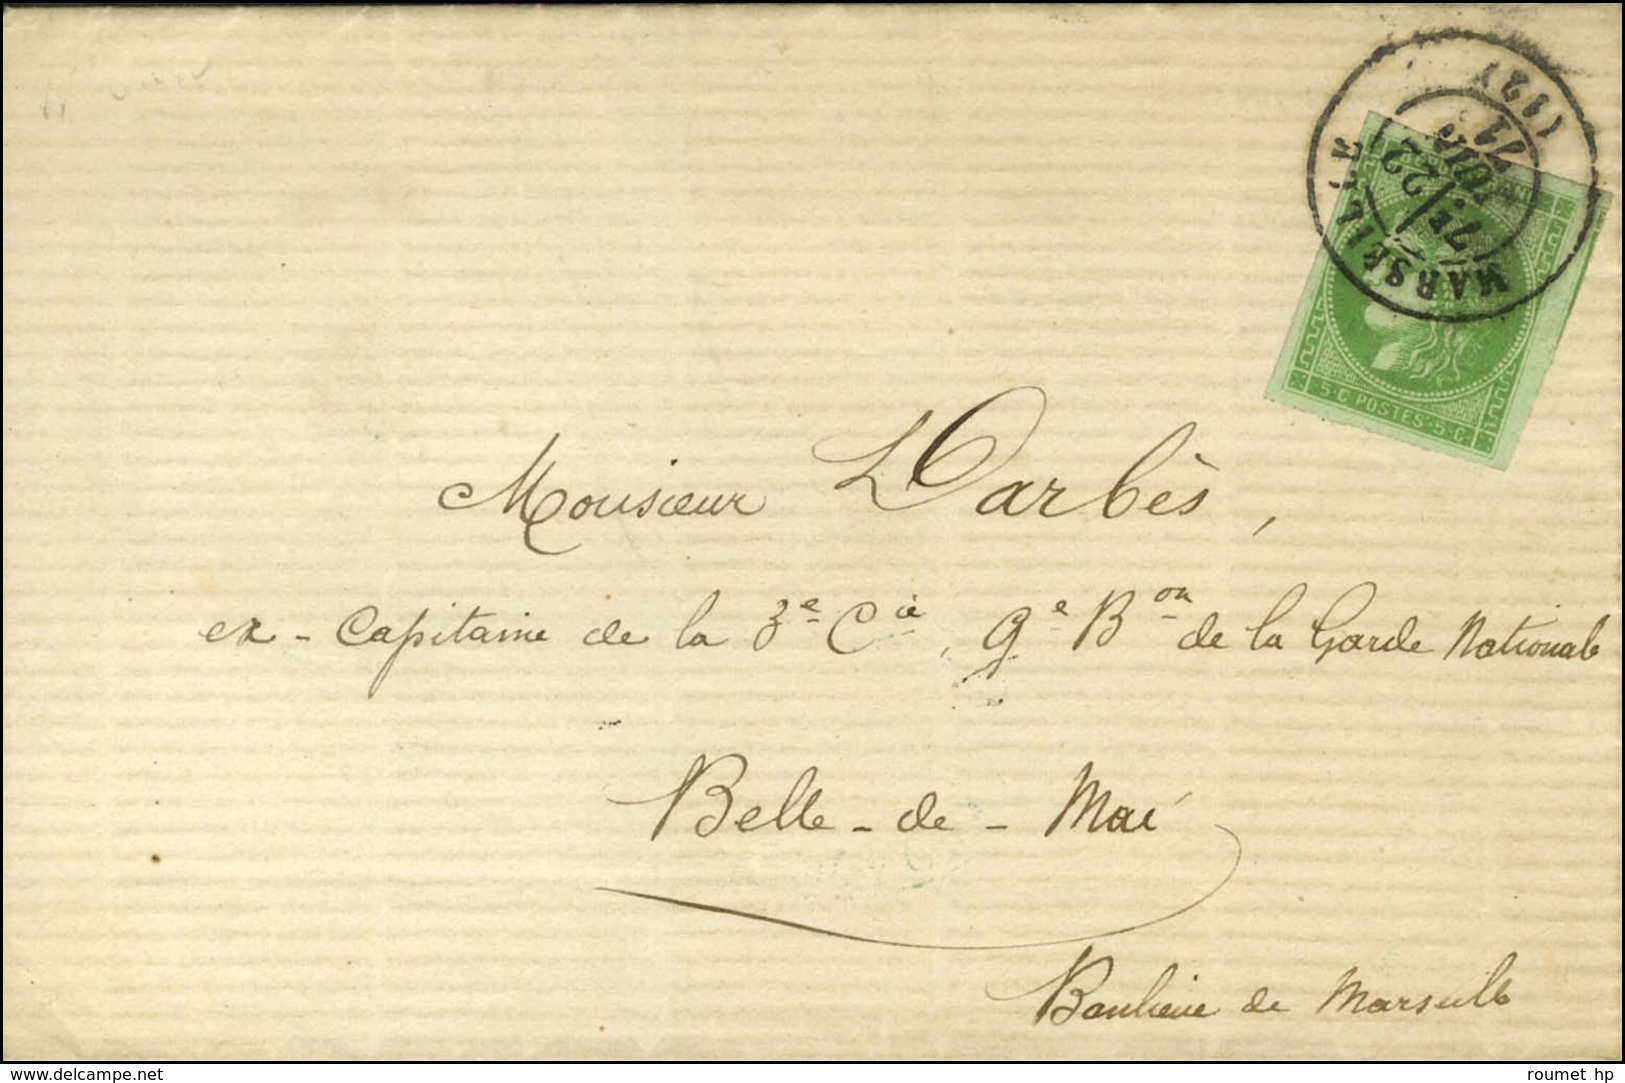 MARSEILLE (12)
7E
22
71
5·C·POSTES·5·C
Monsieur L Darbès,
ex-Capitaine de la 3e Cie, 9e Bon de la Garde Nationale
Belle-de-Mai
Banlieue de Marseille
www.delcampe.net
roumet hp